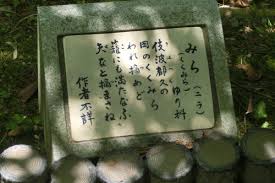 みら（ニラ）
（くくみら）ゆり科
伎波都久の
岡のくくみら
われ摘めど
籠にも満たなふ
なと摘まさね
作者不詳